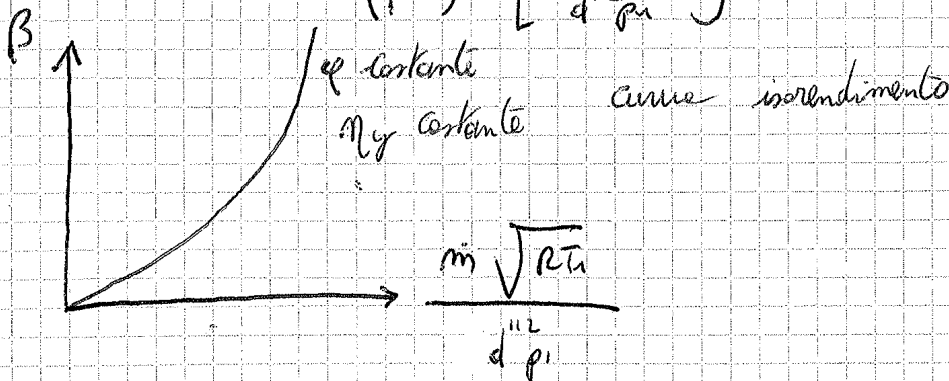 β
φ costante
ηy costante
curve isorendimento
ṁ √RT₁
d"² p₁